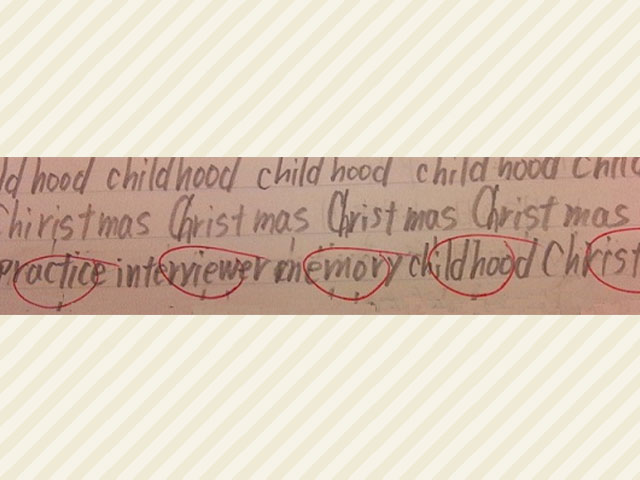 ld hood childhood child hood child hood Child
Chiristmas Christ mas Christ mas Christ mas
Practice interviewer memory childhood Christ